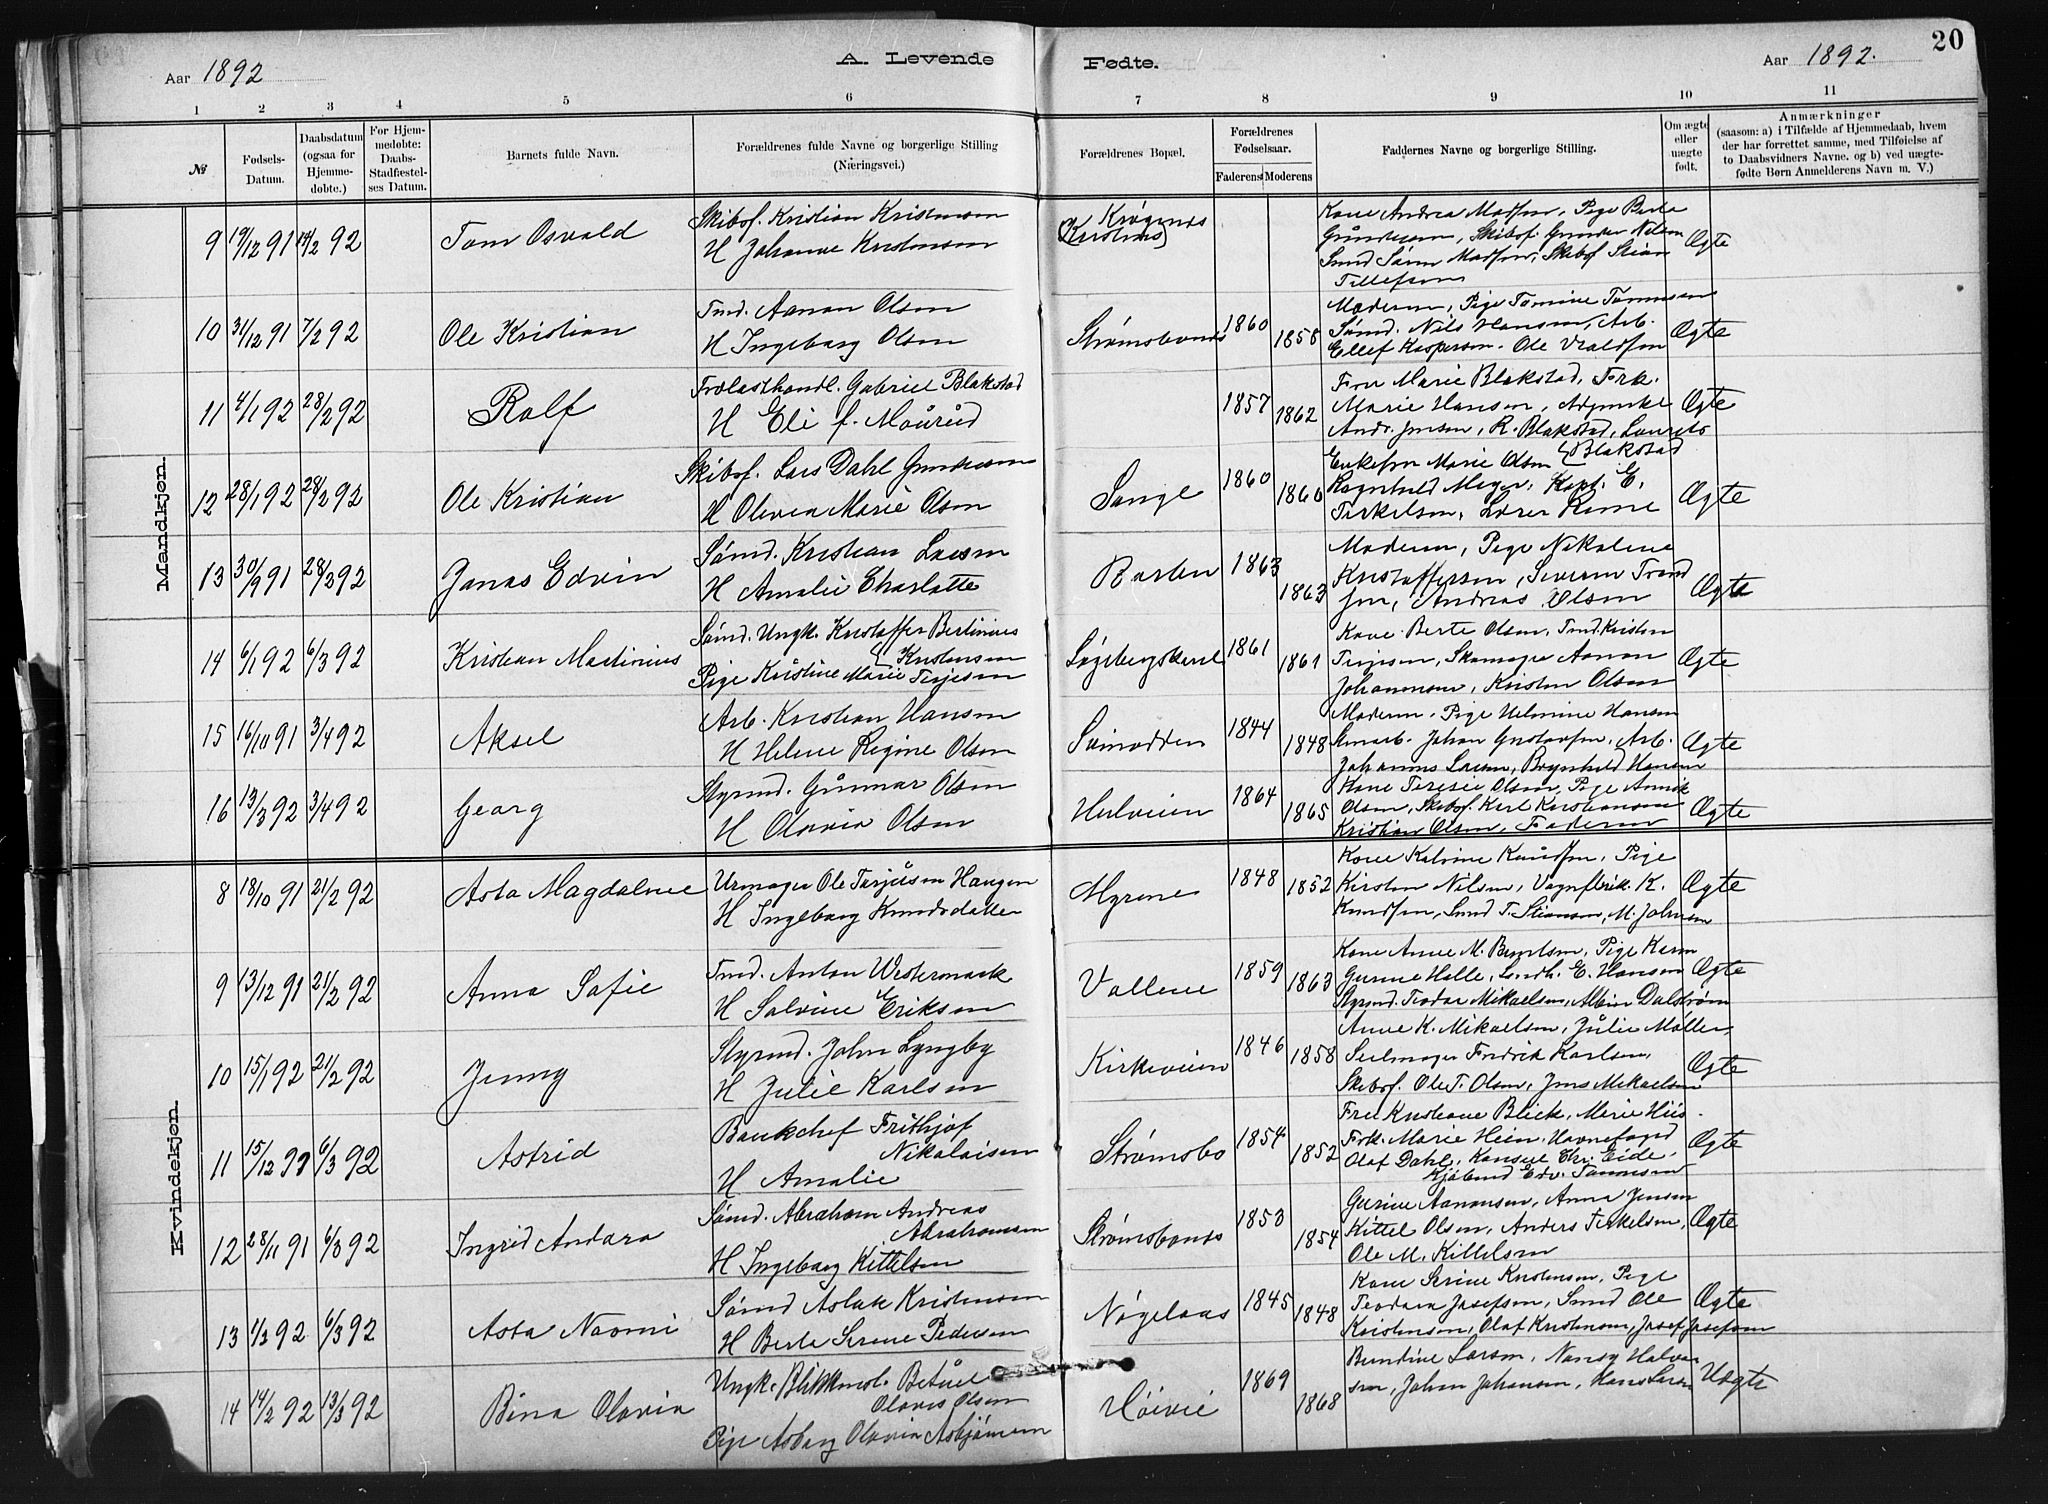 20
Aar 1892
A. Levende
Fødte.
Aar 1892.
1 2 3 4 5 6 7 8 9 10 11
№
Fødsels-Datum.
Daabsdatum (ogsaa for Hjemmedøbte.)
For Hjemmedøbte: Daabs-Stadfæstelses Datum.
Barnets fulde Navn.
Forældrenes fulde Navne og borgerlige Stilling (Næringsvei.)
Forældrenes Bopæl.
Forældrenes Fødselsaar.
Faderens Moderens
Faddernes Navne og borgerlige Stilling.
Om ægte eller uægte født.
Anmærkninger
(saasom: a) i Tilfælde af Hjemmedaab, hvem
der har forrettet samme, med Tilføielse af
to Daabsvidners Navne, og b) ved uægte-
fødte Børn Anmelderens Navn m. V.)
Mandkjøn.
9 19/12 91 14/2 92 Tom Osvald
Skibsf. Kristian Kristensen
H Johanne Kristensen
Krøgenes
Kone Andrea Madsen, Pige Berte
Gundersen, Skibsf. Gunder Nilsen
Smed Søren Madsen, Skibsf Stian
Tellefsen
Ægte
10 31/12 91 7/2 92 Ole Kristian
Tmd. Aanon Olsen
H Ingeborg Olsen
Strømsbones 1860 1858
Moderen, Pige Tomine Tommesen
Sømd. Nils Hansen, Arb.
Ellef Kaspersen. Ole Vraldsen
Ægte
11 4/1 92 28/2 92 Rolf
Trælasthandl. Gabriel Blakstad
H Eli f. Mourud
1857 1862
Fru Marie Blakstad, Frk.
Marie Hansen, Adjunkt
Andr. Jensen, R. Blakstad, Laurits
Blakstad
Ægte
12 28/1 92 28/2 92 Ole Kristian
Skibsf. Lars Dahl Gundersen
H Olevea Marie Olsen
Songe 1860 1860
Enkefru Marie Olsen
Ragnhild Meyer, Kapt. E.
Terkelsen, Lærer Rome
Ægte
13 30/9 91 28/3 92 Jonas Edvin
Sømd. Kristian Larsen
H Amalie Charlotte
Barlen 1863 1863
Moderen, Pige Nikoline
Kristoffersen, Severin Trond
sen, Andreas Olsen
Ægte
14 6/1 92 6/3 92 Kristian Martinius
Sømd. Ungk. Kristoffer Bertinius
Kristensen
Pige Kristine Marie Terjesen
Løgebergskaret 1861 1861
Kone Berte Olsen, Tmd. Kristen
Terjesen, Skomager Aanon
Johannesen, Kristen Olsen
Ægte
15 16/10 91 3/4 92 Aksel
Arb. Kristian Hansen
H Helene Regine Olsen
Svinodden 1844 1848
Moderen, Pige Helmine Hansen
Smarb. Johan Gustavsen, Arb.
Johannes Larsen, Bergnhild Hansen
Ægte
16 13/3 92 3/4 92 Georg
Styrmd. Gunnar Olsen
H Olovia Olsen
Hulveien 1864 1865
Kone Teresie Olsen, Pige Annie
Olsen, Skibsf. Karl Kristiansen
Kristian Olsen, Faderen
Ægte
Kvindekjøn.
8 18/10 91 21/2 92 Asta Magdalene
Urmager Ole Terjesen Haugen
H Ingeborg Knudsdatter
Myrene 1848 1852
Kone Katrine Knudsen, Pige
Kirsten Nilsen, Vognfbrik. K.
Knudsen, Smed T. Stiansen, M. Johnsen
Ægte
9 13/12 91 21/2 92 Anna Sofie
Tmd. Anton Westermark
H Salvine Eriksen
Vollene 1859 1863
Kone Anne M. Berntsen, Pige Karen
Gurine Halle, Landh. E. Hansen
Styrmd. Teodor Mikaelsen, Albin Dalstrøm
Ægte
10 15/1 92 21/2 92 Jenny
Styrmd. John Lyngby
H Julie Karlsen
Kirkeveien 1846 1858
Anne K. Mikaelsen, Julie Møller
Seilmager Fredrik Karlsen,
Skibsf. Ole T. Olsen, Jens Mikaelsen
Ægte
11 15/12 91 6/3 92 Astrid
Bankchef Frithjof
Nikolaisen
H Amalie
Strømsbo 1854 1852
Fru Kristiane Blick, Marie Hiis
Frk. Marie Hein, Havnefoged
Olaf Dahl, Konsul Chr. Eide,
Kjøbmd Edv. Tommesen
Ægte
12 28/11 91 6/3 92 Ingrid Andora
Sømd. Abraham Andreas
Abrahamsen
H Ingeborg Kittelsen
Strømsbones 1853 1854
Gurine Aanonsen, Anna Jensen
Kittel Olsen, Anders Terkelsen,
Ole M. Kittelsen
Ægte
13 1/3 92 6/3 92 Asta Naomi
Sømd Aslak Kristensen
H Berte Serene Pedersen
Nøgelaas 1845 1848
Kone Serine Kristensen, Pige
Teodora Josefsen, Smed Ole
Kristensen, Olaf Kristensen, Josef Josefsen
Ægte
14 14/2 92 13/3 92 Bina Olovia
Ungk. Blikkmsl. Betuel
Olavis Olsen
Pige Asborg Olovia Asbjørnsen
Høivie 1869 1868
Berntine Larsen, Nansy Halvor
sen, Johan Johansen, Hans Larsen
Uægte